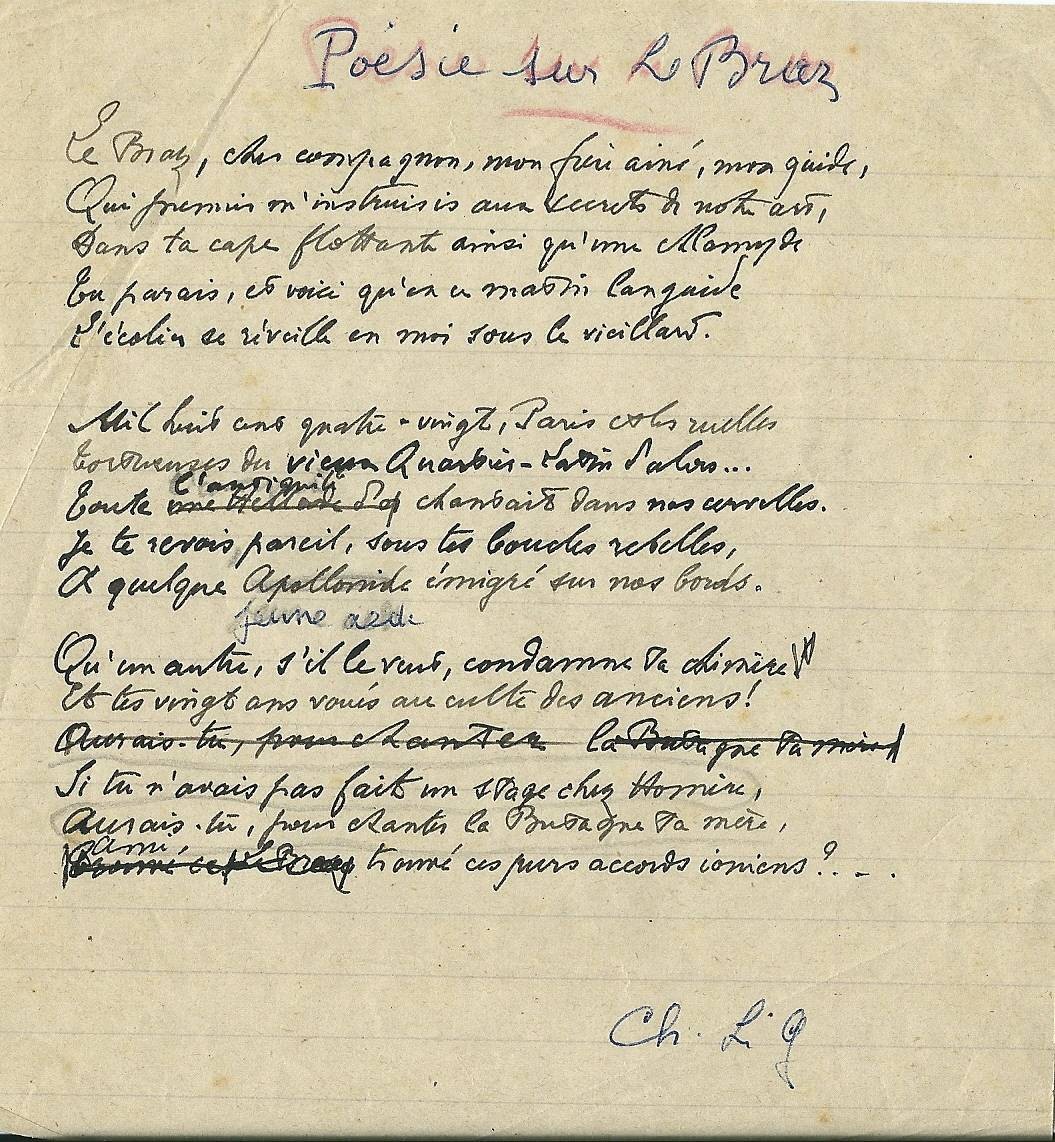 Poésie sur Le Braz
Le Braz, cher compagnon, mon frère ainé, mon guide,
Qui premier m'instruisis aux secrets de notre art,
Dans ta cape flottante ainsi qu'une chlamyde
Tu parais, et voici qu'en ce matin languide
L'écolier se réveille en moi sous le vieillard.
Mil huit cent quatre-vingt, Paris et les ruelles
Tortueuses du vieux Quartier-Latin d'alors...
l'antiquité
Toute une Hellade chantait dans nos cervelles.
Je te revois pareil, sous tes boucles rebelles,
A quelque Apollonide émigré sur nos bords.
jeune aede
Qu'un autre, s'il le veut, condamne ta chimère
Et tes vingt ans voués au culte des anciens!
Aurais-tu, pour chanter la Bretagne ta mère
Si tu n'avais pas fait un stage chez Homère,
Aurais-tu, pour chanter la Bretagne ta mère,
ami,
trouvé ces purs accords ioniens?...
Ch. L. G